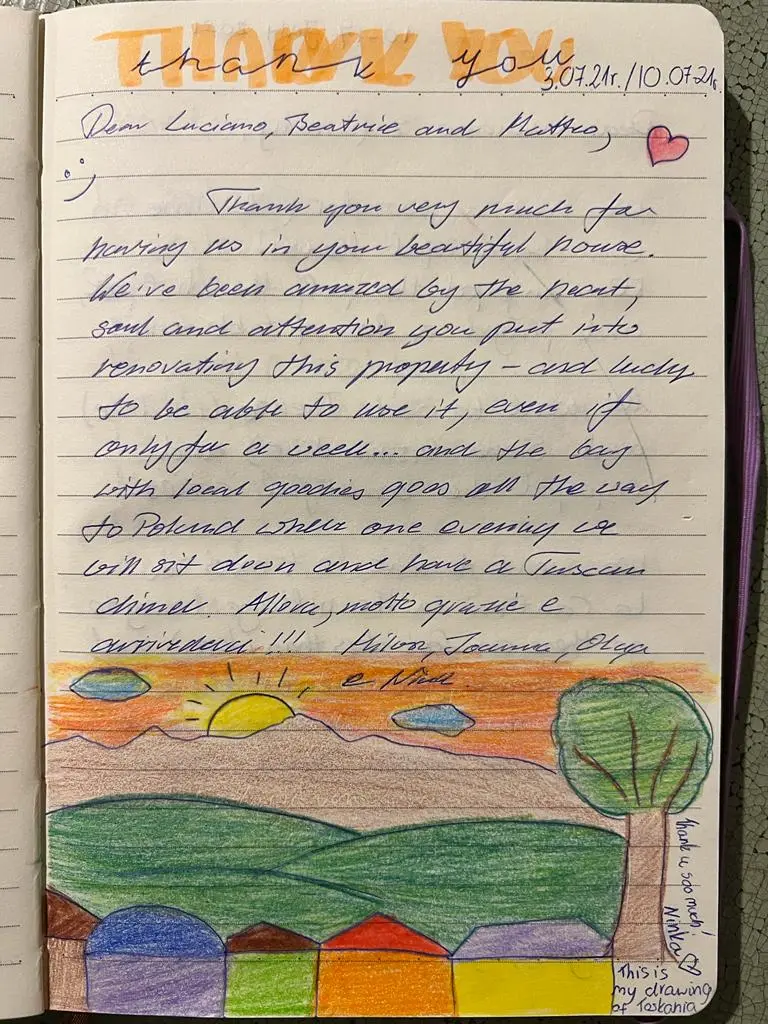 THANK YOU
thank you
3.07.21r./10.07.21r.
Dear Luciano, Beatrice and Matteo,
:)
Thank you very much for
having us in your beautiful house.
We've been amazed by the heart,
soul and attention you put into
renovating this property – and lucky
to be able to use it, even if
only for a week... and the bag
with local goodies goes all the way
to Poland where one evening we
will sit down and have a Tuscan
dinner. Allora, molto grazie e
arrivederci!!! Joanna, Olga
e
Thank u soo much!
Ninka
This is
my drawing
of Toskania